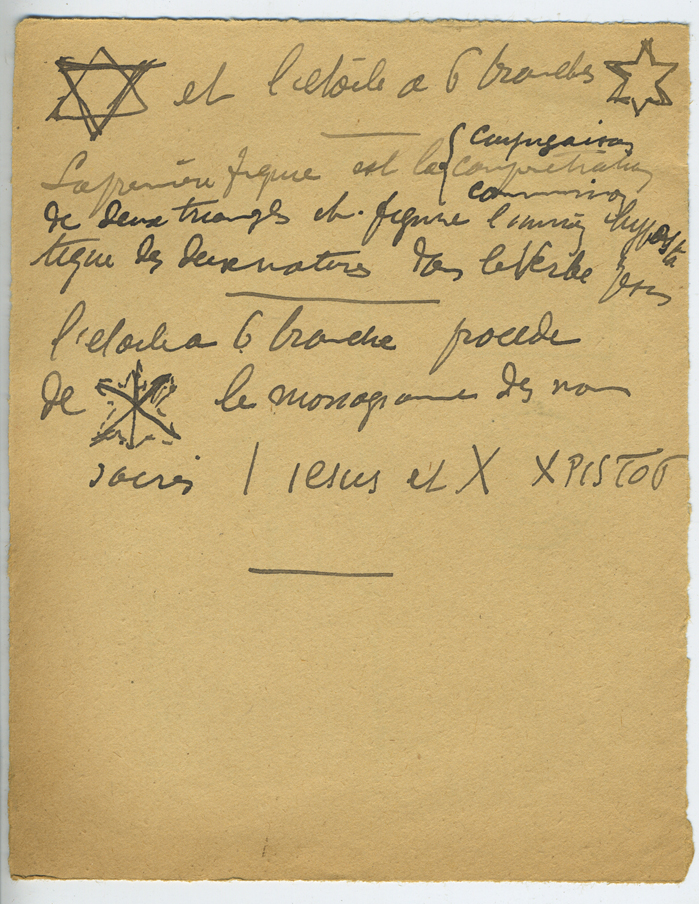 et l'etoile a 6 branches
conjugaison
La première figure est la { compénétration
commixion
de deux triangles et figure l'union hyposta
tique des deux natures dans le Verbe Jésus
l'etoile a 6 branche procede
de le monogramme des noms
sacrés I iesus et X XPISTOS